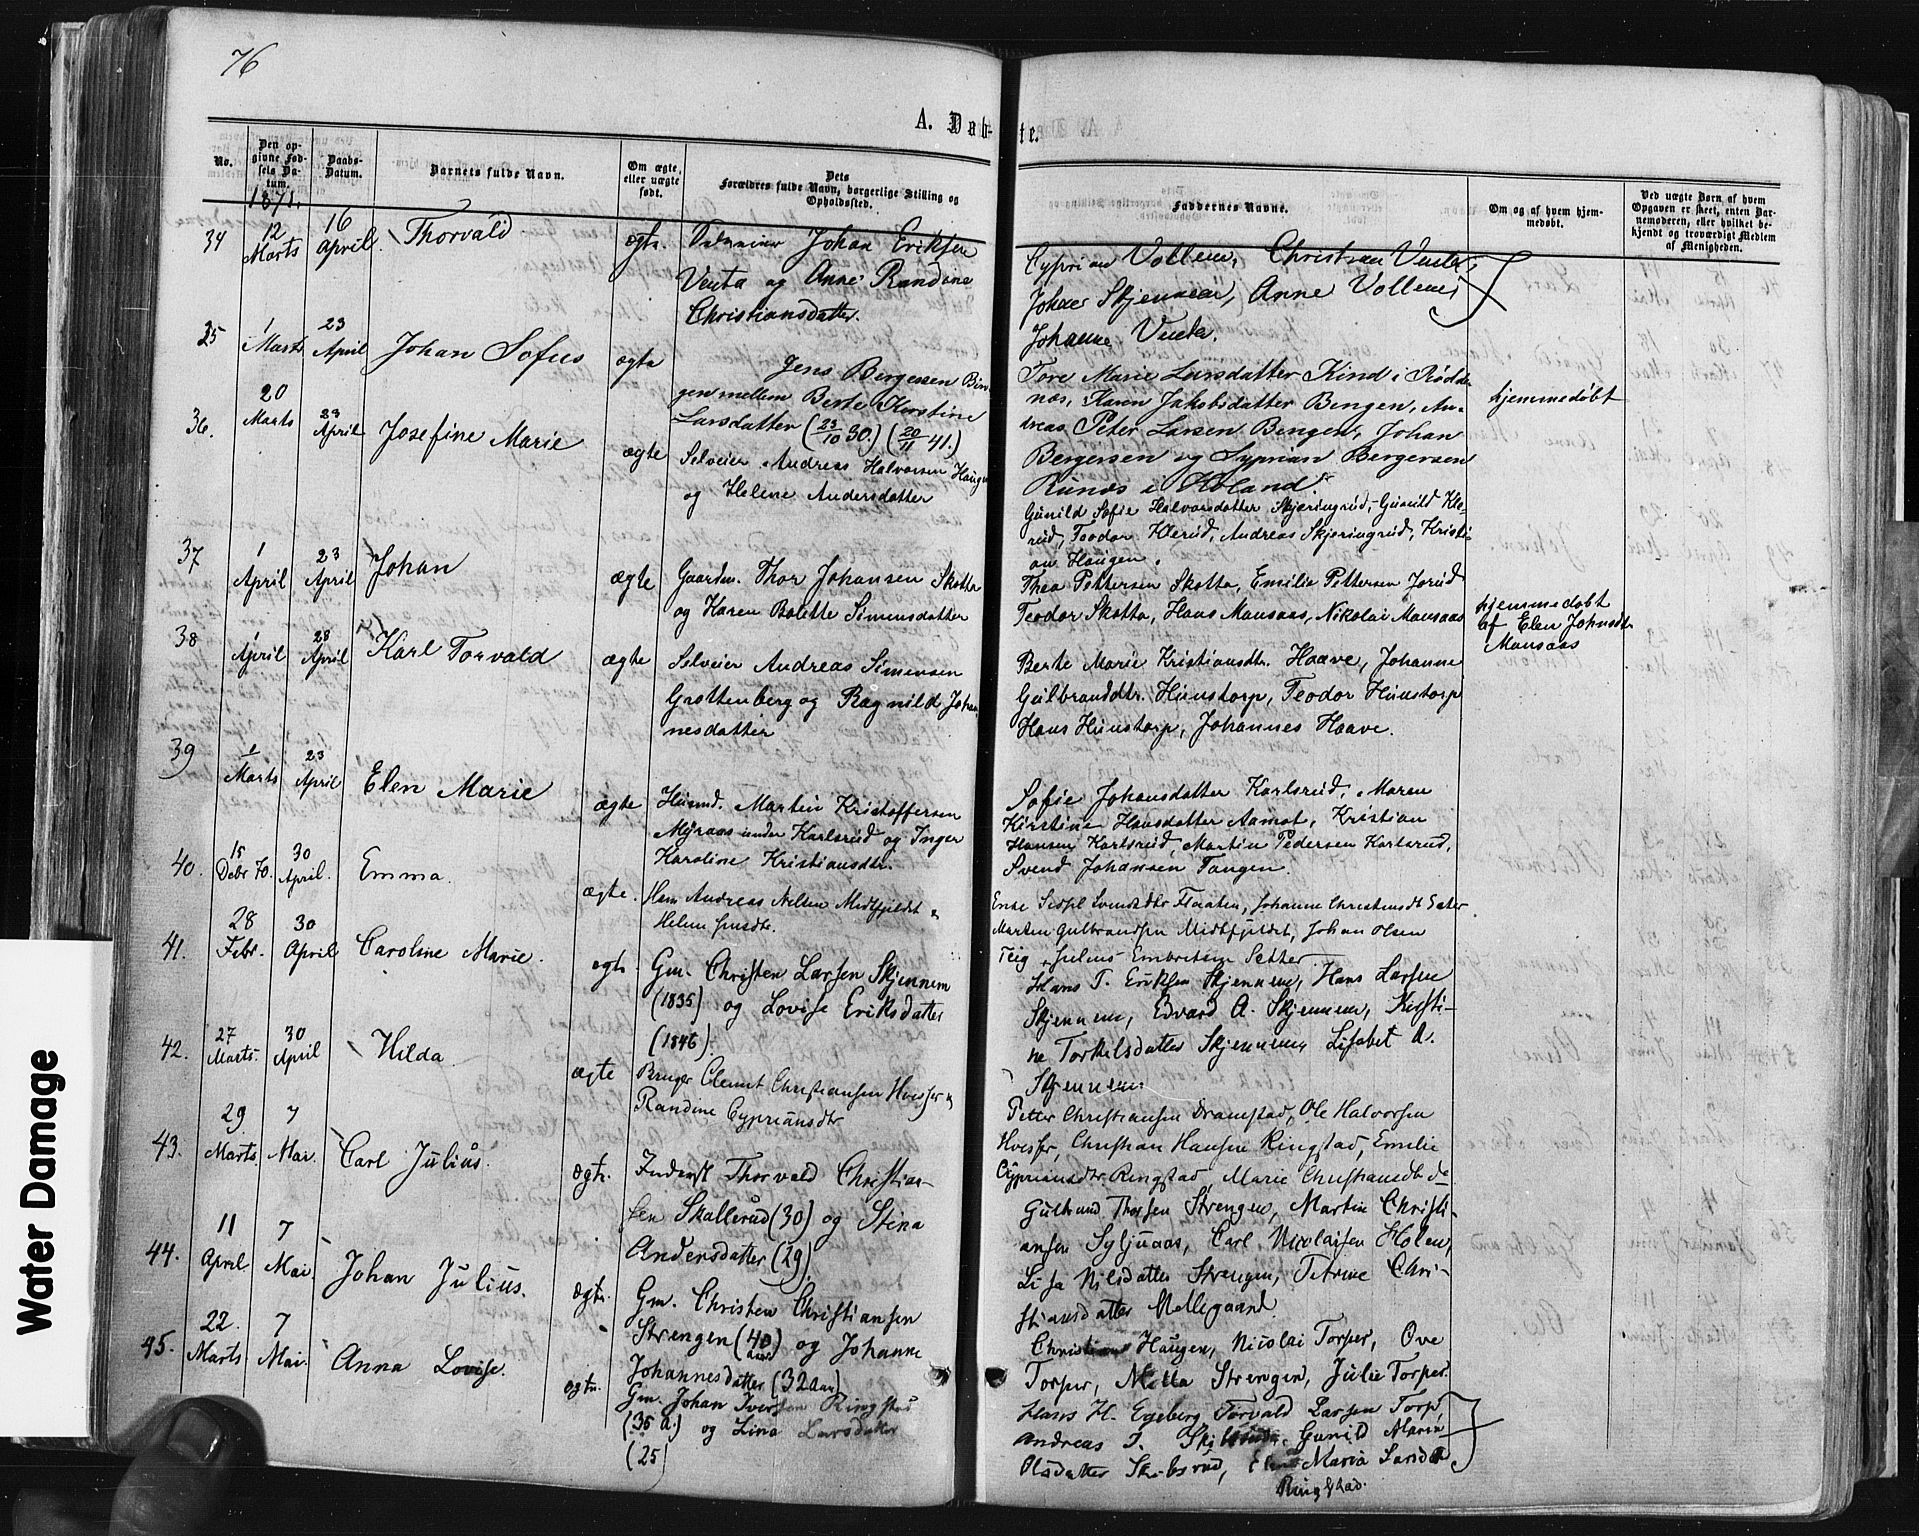 76
A. Døb-
te.
No.
Den op-
givne Fød-
sels Da-
tum.
Daabs-
Datum.
Barnets fulde Navn.
Om ægte,
eller uægte
født.
Dets
Forældres fulde Navn, borgerlige Stilling og
Opholdssted.
Faddernes Navne.
Om og af hvem hjem-
medøbt.
Ved uægte Børn af hvem
Opgaven er skeet, enten Bar-
nemoderen, eller hvilket be-
kjendt og troværdigt Medlem
af Menigheden.
1871.
34
12
Marts
16
April
Thorvald
ægte.
Johan Eriksen
Venta og Anne Randine
Christiansdatter.
Cyprian Vollen, Christian Venta,
Johan Skjennem, Anne Vollen,
Johanne Venta.
35
1
Marts
23
April
Johan Sofus
ægte
Jens Bergersen Bin-
gen mellem Berte Kirstine
Larsdatter (23/10 30.) (20/11 41.)
Tore Marie Larsdatter Kind i Rødde-
næs, Karen Jakobsdatter Bingen, An-
dreas Peter Larsen Bingen, Johan
Bergersen og Syprian Bergersen
Runæs i Høland.
hjemmedøbt
36.
20
Marts
23
April
Josefine Marie
ægte
Selveier Andreas Halvorsen Haugen
og Helene Andersdatter
Gunild Sofie Halvorsdatter Skjeringrud, Gunild Kle-
rud, Teodor Klerud, Andreas Skjeringrud, Kristi-
an Haugen.
37
1
April
23
April
Johan
ægte
Gaardm. Thor Johansen Skotta
og Karen Bolette Simensdatter
Thea Pettersen Skotta, Emilie Pettersen Jorud
Teodor Skotta, Hans Mansaas, Nikolai Mansaas
hjemmedøbt
af Elen Johnsdtr
Mansaas
38
1
April
23
April
Karl Torvald
ægte
Selveier Andreas Simensen
Grottenberg og Ragnild Johan-
nesdatter
Berte Marie Kristiansdtr. Haave, Johanne
Gulbrandsdtr. Hunstorp, Teodor Hunstorp
Hans Hunstorp, Johannes Haave.
39
1
Marts
23
April
Elen Marie
ægte
Husmd. Martin Kristoffersen
Myraas under Karlsrud og Inger
Karoline Kristiansdtr.
Sofie Johansdatter Karlsrud, Maren
Kirstine Hansdatter Aamot, Kristian
Hansen Karlsrud, Martin Pedersen Karlsrud,
Svend Johansen Tangen.
40.
15
Debr 70.
30
April.
Emma.
ægte.
Hsm. Andreas Nilsen Midtfjeldet &
Helene Jensdtr.
Svendsdtr Flaaten, Johanne Christensdt Sæter
Marten Gulbrandsen Midtfjeldet, Johan Olsen
Teig, Julius Embretsen Setter
41.
28
Febr.
30
April
Caroline Marie.
ægte
Gm. Christen Larsen Skjennem
(1835) og Lovise Eriksdatter
(1846).
Hans T. Eriksen Skjennem, Hans Larsen
Skjennem, Edvard A. Skjennem, Kirsti-
ne Torkelsdatter Skjennem, Lisabet A.
Skjennem
42.
27
Marts.
30
April
Hilda
ægte
Bruger Clemet Christiansen Hvisser og
Randine Cypriansdtr
Petter Christiansen Dramstad, Ole Halvorsen
Hvisser, Christian Hansen Ringstad, Emilie
Cypriansdtr Ringstad, Marie Christiansdtr do
43.
29
Marts.
7
Mai.
Carl Julius.
ægte.
Inderst Thorvald Christian-
sen Skallerud (30) og Stina
Andersdatter (29)
Gulbrand Thorsen Strengen, Martin Christi-
ansen Syljuaas, Carl Nicolaisen Holen,
Lisa Nilsdatter Strengen, Petrine Chri-
stiansdatter Mollegaard
44.
11
April
7
Mai.
Johan Julius.
ægte.
Gm. Christen Christiansen
Strengen (40 aar) og Johanne
Johannesdatter (32 aar)
Christian Haugen, Nicolai Torper, Ove
Torper, Metta Strengen, Julie Torper.
45.
22.
Marts
7
Mai.
Anna Lovise.
ægte.
Gm. Johan Iversen Ringstad
(35 a.) og Lina Larsdatter
(25)
Hans H. Egeberg, Torvald Larsen Torp,
Andreas J. Gunild Maria
Olsdatter Skibsrud, Maria Larsd.
Ringstad.
Water Damage